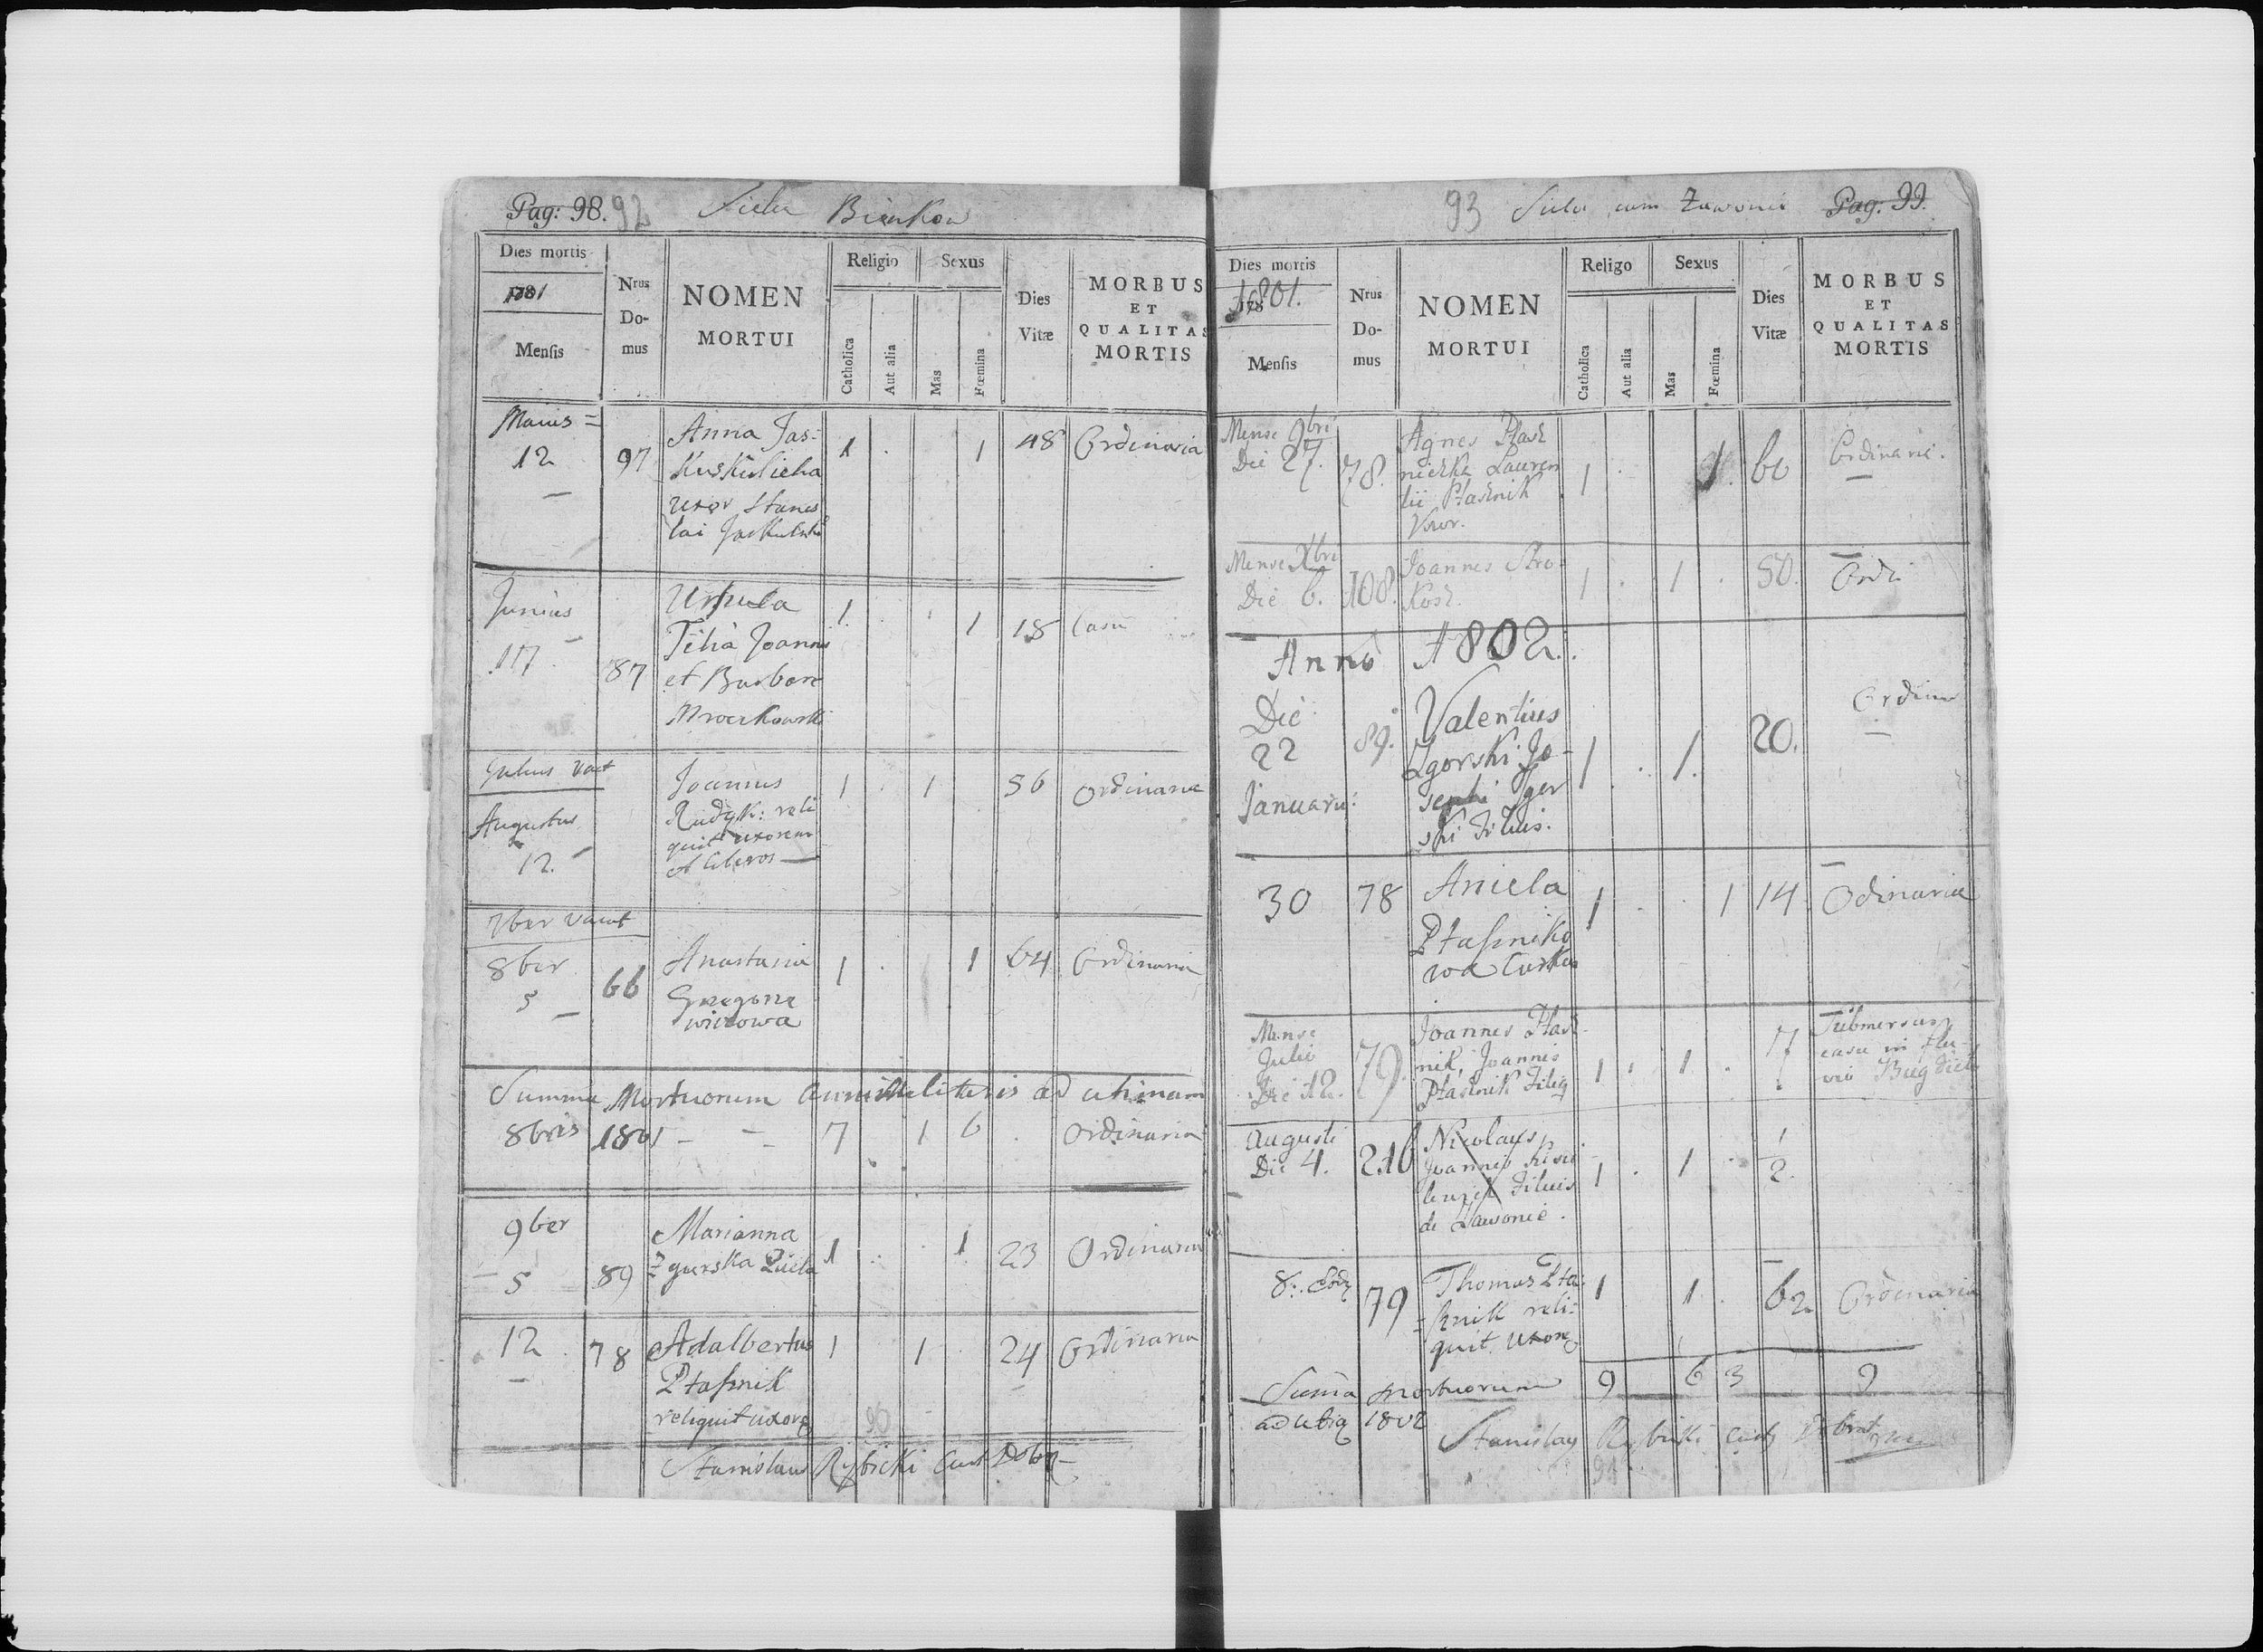 Pag: 98. 92 Sielec Bieńkow
Dies mortis
1801
Mensis
Nrus
Do-
mus
NOMEN
MORTUI
Religio
Catholica
Aut alia
Sexus
Mas
Fœmina
Dies
Vitæ
MORBUS
ET
QUALITAS
MORTIS
Maius =
12
97
Anna Jas=
kuskulicha
uxor Stanis
lai
1 . 1 48 Ordinaria
Junius
17
87
Ursula
Filia Joannis
et Barbare
Mroczkowski
1 . 1 18 Casu
Julius vacat
Augustus
12.
Joannes
Rudyk: reli
quit uxorem
et liberos
1 . 1 56 Ordinaria
7ber vacat
8ber
5
66
Anastasia
Grzegorze
wiczowa
1 . 1 64 Ordinaria
Summa Mortuorum ad ultimam
8bris 1801 - - 7 1 6 . Ordinaria
9ber
5
89
Marianna
Zgurska
1 . . 1 23 Ordinaria
12
78
Adalbertus
Ptaſznik
reliquit uxorē
1 1 24 Ordinaria
90
Stanislaus Rybicki
93 Sielec cum Zawonie Pag: 99.
Dies mortis
1801.
178
Mensis
Nrus
Do-
mus
NOMEN
MORTUI
Religo
Catholica
Aut alia
Sexus
Mas
Fœmina
Dies
Vitæ
MORBUS
ET
QUALITAS
MORTIS
Mense 9bri
Die 27.
78.
Agnes Ptasz
niczka Lauren
tii Ptasznik
Vxor.
1 . 1. 60 Ordinarie.
Mense Xbri
Die 6.
108.
Joannes Stro
kosz.
1 . 1 . 50. Ordi
Anno 1802.
Die
22
Januarii
89.
Valentius
Zgorski Jo-
sephi Zgor
ski Filius.
1 . 1. 20. Ordina
30
78
Aniela
Ptaſzniko
wa Curka
1 . . 1 14 Odinaria
Mense
Julio
Die 12.
79.
Joannes Ptasz
nik, Joannis
Ptasznik Filiꝯ
1 . 1 . 17 Submersus
casu in flu-
vio Bug dicto
Augusti
Die 4.
216
Nicolaus
Joannis
Filius
de Zawonie.
1 . 1 . 1/2.
8:
79
Thomas Pta-
ſznik reli=
quit uxorē
1 1 . 62 Ordinaria
9 6 3 9
Suma mortuorum
1802
Stanislaus Rybicki